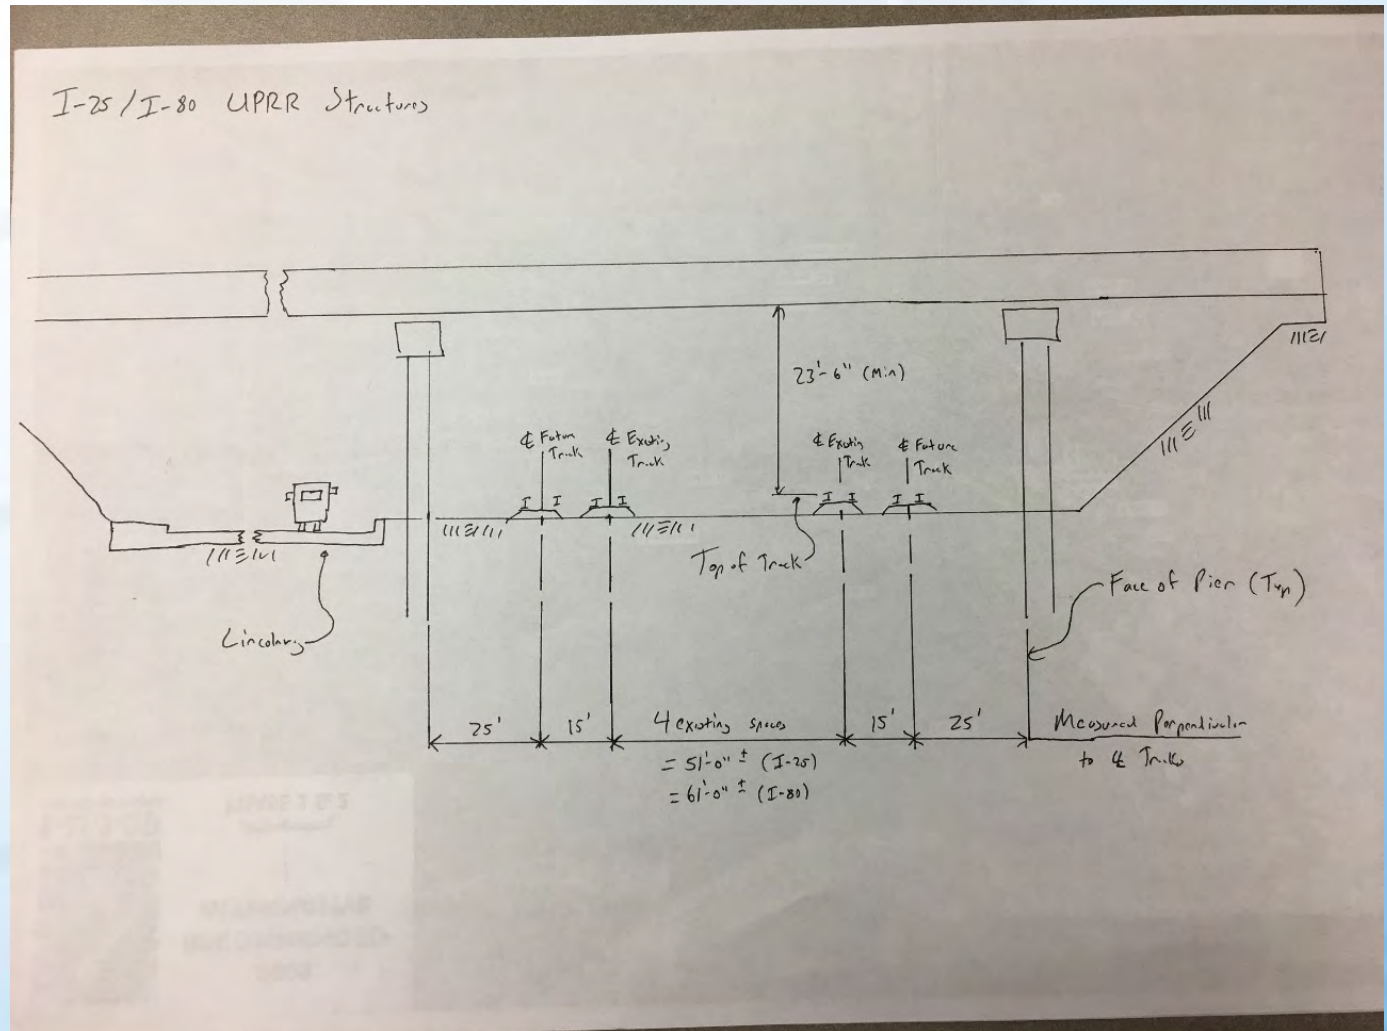 I-25/I-80 UPRR Structures
23'-6" (Min)
℄ Future
Track
℄ Existing
Track
℄ Existing
Track
℄ Future
Track
Top of Track
Lincolnway
Face of Pier (Typ)
25'
15'
4 existing spaces
= 51'-0" ± (I-25)
= 61'-0" ± (I-80)
15'
25'
Measured Perpendicular
to ℄ Tracks